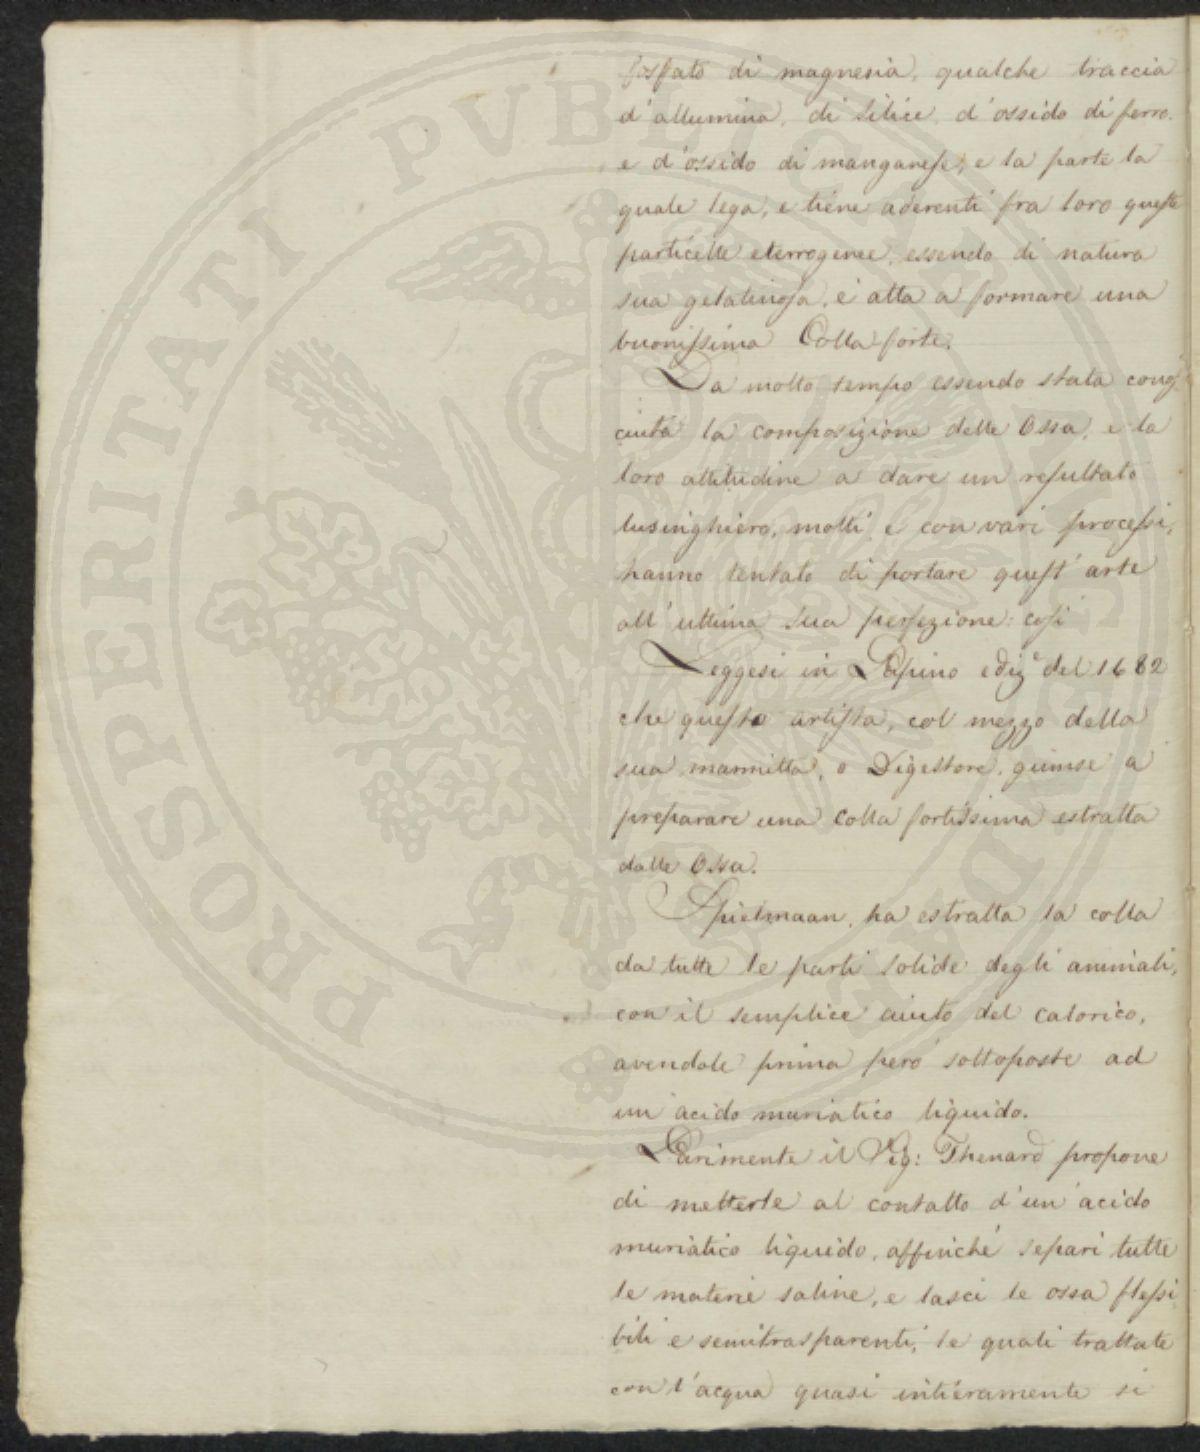 fosfato di magnesia, qualche traccia
d'allumina, di silice, d'ossido di ferro,
e d'ossido di manganese, e la parte la
quale lega, e tiene aderenti fra loro queste
particelle eterrogenee, essendo di natura
sua gelatinosa, è atta a formare una
buonissima Colla forte.
Da molto tempo essendo stata conos
ciuta la composizione delle Ossa, e la
loro attitudine a dare un resultato
lusinghiero, molti, e con vari processi,
hanno tentato di portare quest'arte
all'ultima sua perfezione: così
Leggesi in Papino ediz.e del 1682
che questo artista, col mezzo della
sua marmitta, o Digestore, giunse a
preparare una colla fortissima estratta
dalle Ossa.
Spielmaan, ha estratta la colla
da tutte le parti solide degli animali,
con il semplice aiuto del calorico,
avendole prima però sottoposte ad
un'acido muriatico liquido.
Parimente il Sig: Thenard propone
di metterle al contatto d'un'acido
muriatico liquido, affinché separi tutte
le materie saline, e lasci le ossa flessi
bili e semitrasparenti, le quali trattate
con l'acqua quasi intieramente si
PROSPERITATI PVBLICAE